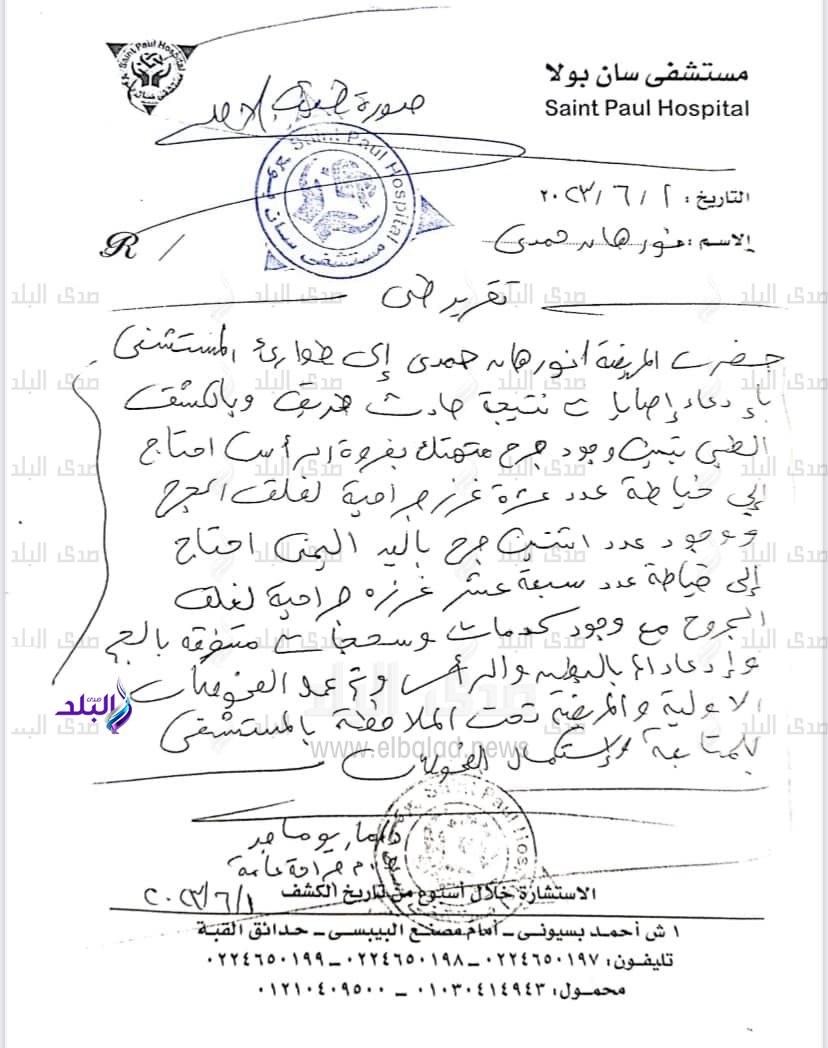 مستشفى سان بولا
Saint Paul Hospital
صورة طبق الأصل
Saint Paul Hospital
مستشفى سان
التاريخ : ٢٠٢٣/٦/١
الاسم : نورهان حمدى
R /
تقرير طبى
حضرت المريضة / نورهان حمدى إلى طوارئ المستشفى
بإدعاء إصابات نتيجة حادث طريق وبالكشف
الطبى تبين وجود جرح متهتك بفروة الرأس احتاج
إلى خياطة عدد عشرة غرز جراحية لغلق الجرح
ووجود عدد اثنين جرح باليد اليمنى احتاج
إلى خياطة عدد سبعة عشر غرزه جراحية لغلق
الجروح مع وجود كدمات وسحجات متفرقه بالجسم
وإدعاء الم بالبطن والرأس وتم عمل الفحوصات
الاولية والمريضة تحت الملاحظة بالمستشفى
للمتابعة ولإستكمال الفحوصات
صدى البلد
www.elbalad.news
د/ ماريو ماجد
جراحة عامة
الاستشارة خلال أسبوع من تاريخ الكشف
٢٠٢٣/٦/١
١ ش أحمد بسيونى - أمام مصنع البيبسى - حدائق القبة
تليفون : ٠٢٢٤٦٥٠١٩٧ - ٠٢٢٤٦٥٠١٩٨ - ٠٢٢٤٦٥٠١٩٩
محمول : ٠١٠٣٠٤١٤٩٤٣ - ٠١٢١٠٤٠٩٥٠٠